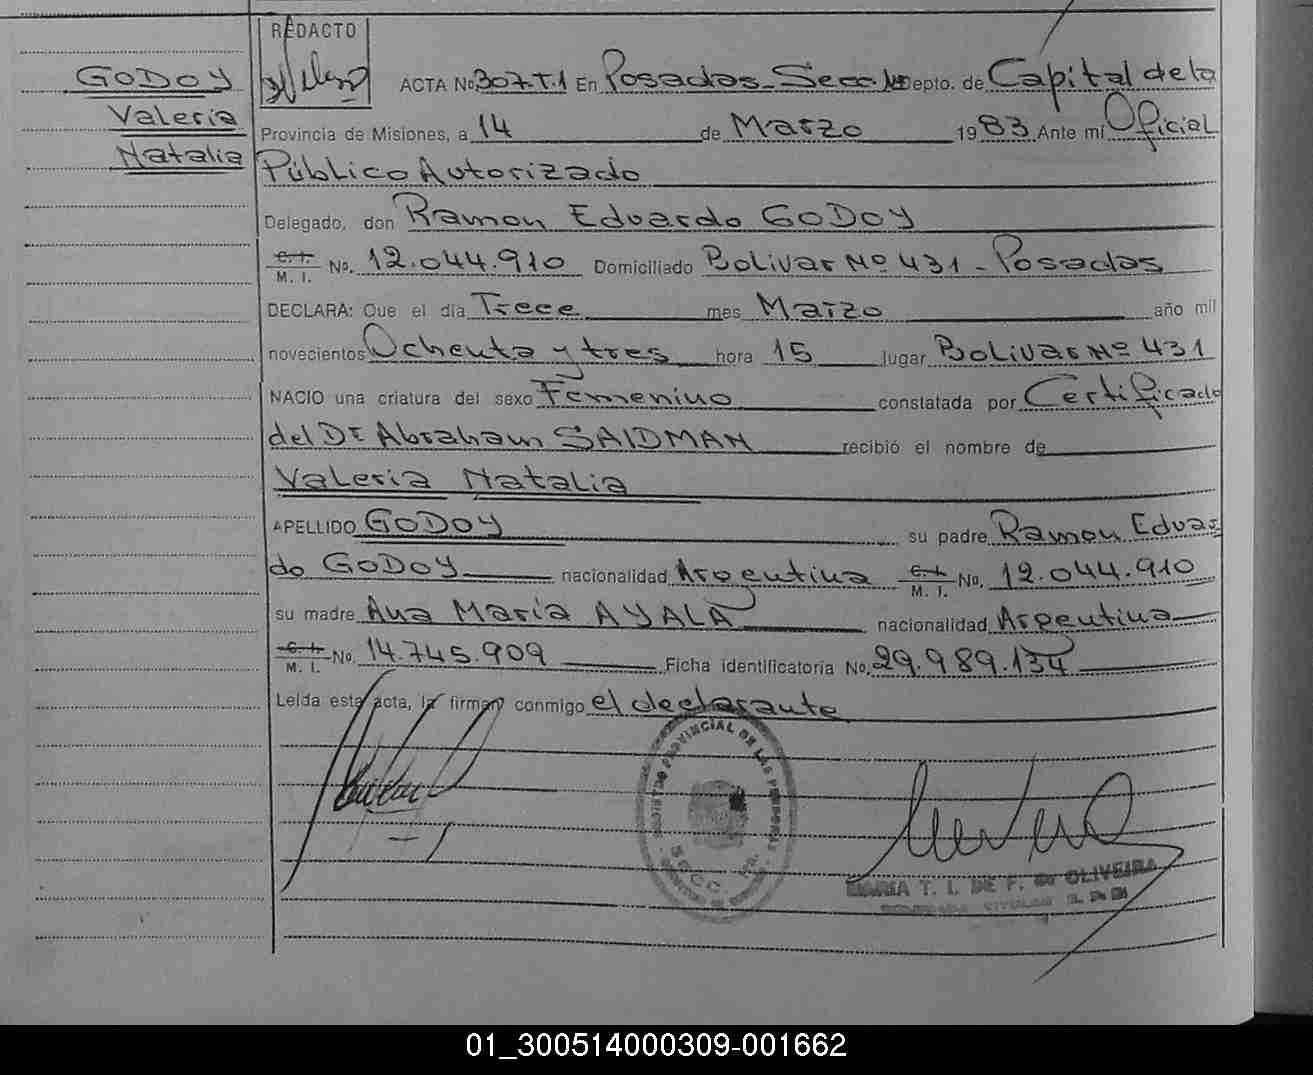 GODOY
Valeria
Natalia
REDACTO
ACTA No. 307.T.1 En Posadas - Secc. Depto. de Capital de la
Provincia de Misiones, a 14 de Marzo 1983. Ante mí Oficial
Público Autorizado
Delegado, don Ramon Eduardo GODOY
C. I. / M. I. No. 12.044.910 Domiciliado Bolivar Nº 431 - Posadas
DECLARA: Que el día Trece mes Marzo año mil
novecientos Ochenta y tres hora 15 lugar Bolivar Nº 431
NACIO una criatura del sexo Femenino constatada por Certificado
del Dr Abraham SAIDMAN recibió el nombre de
Valeria Natalia
APELLIDO GODOY su padre Ramon Eduar
do GODOY nacionalidad Argentina C. I. / M. I. No. 12.044.910
su madre Ana María AYALA nacionalidad Argentina
C. I. / M. I. No. 14.745.909 Ficha identificatoria No. 29.989.134
Leída esta acta, la firman conmigo el declarante
REGISTRO PROVINCIAL DE LAS PERSONAS
SECC.
MARIA T. I. DE F. de OLIVEIRA
TITULAR
01_300514000309-001662